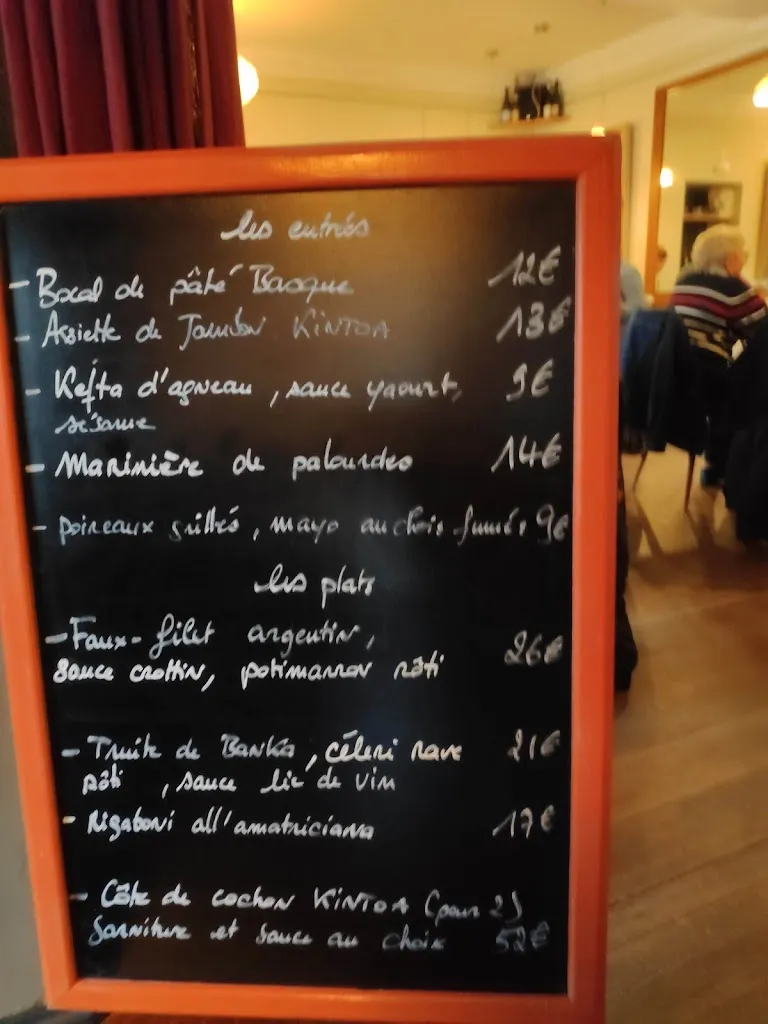 les entrées
- Bocal de pâté Basque 12€
- Assiette de Jambon KINTOA 13€
- Kefta d'agneau, sauce yaourt, 9€
sésame
- Marinière de palourdes 14€
- poireaux grillés, mayo anchois fumés 9€
les plats
- Faux-filet argentin, 26€
sauce crottin, potimarron rôti
- Truite de Banka, céleri rave 21€
rôti, sauce lie de vin
- Rigatoni all'amatriciana 17€
- Côte de cochon KINTOA (pour 2)
Garniture et sauce au choix 52€